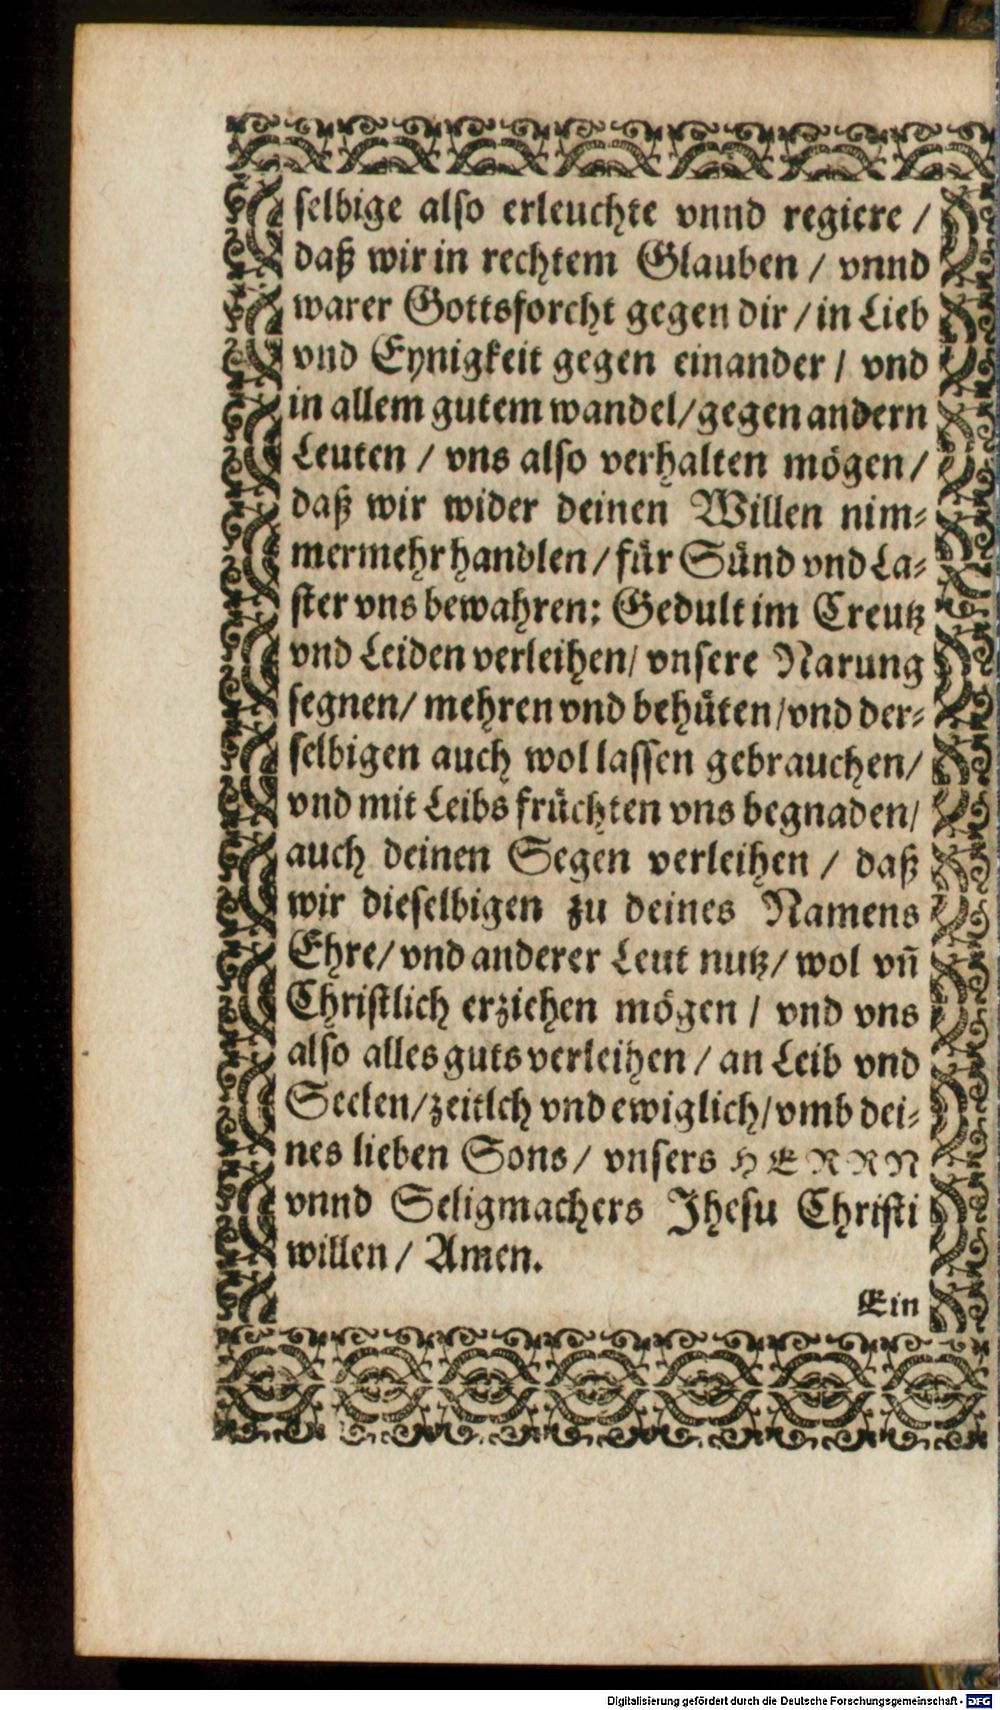 selbige also erleuchte vnnd regiere /
daß wir in rechtem Glauben / vnnd
warer Gottsforcht gegen dir / in Lieb
vnd Eynigkeit gegen einander / vnd
in allem gutem wandel / gegen andern
Leuten / vns also verhalten mögen /
daß wir wider deinen Willen nim⸗
mermehr handlen / für Sünd vnd La⸗
ster vns bewahren: Gedult im Creutz
vnd Leiden verleihen / vnsere Narung
segnen / mehren vnd behüten / vnd der⸗
selbigen auch wol lassen gebrauchen /
vnd mit Leibs früchten vns begnaden /
auch deinen Segen verleihen / daß
wir dieselbigen zu deines Namens
Ehre / vnd anderer Leut nutz / wol vñ
Christlich erziehen mögen / vnd vns
also alles guts verleihen / an Leib vnd
Seelen / zeitlch vnd ewiglich / vmb dei⸗
nes lieben Sons / vnsers HERRN
vnnd Seligmachers Jhesu Christi
willen / Amen.
Ein
Digitalisierung gefördert durch die Deutsche Forschungsgemeinschaft - DFG